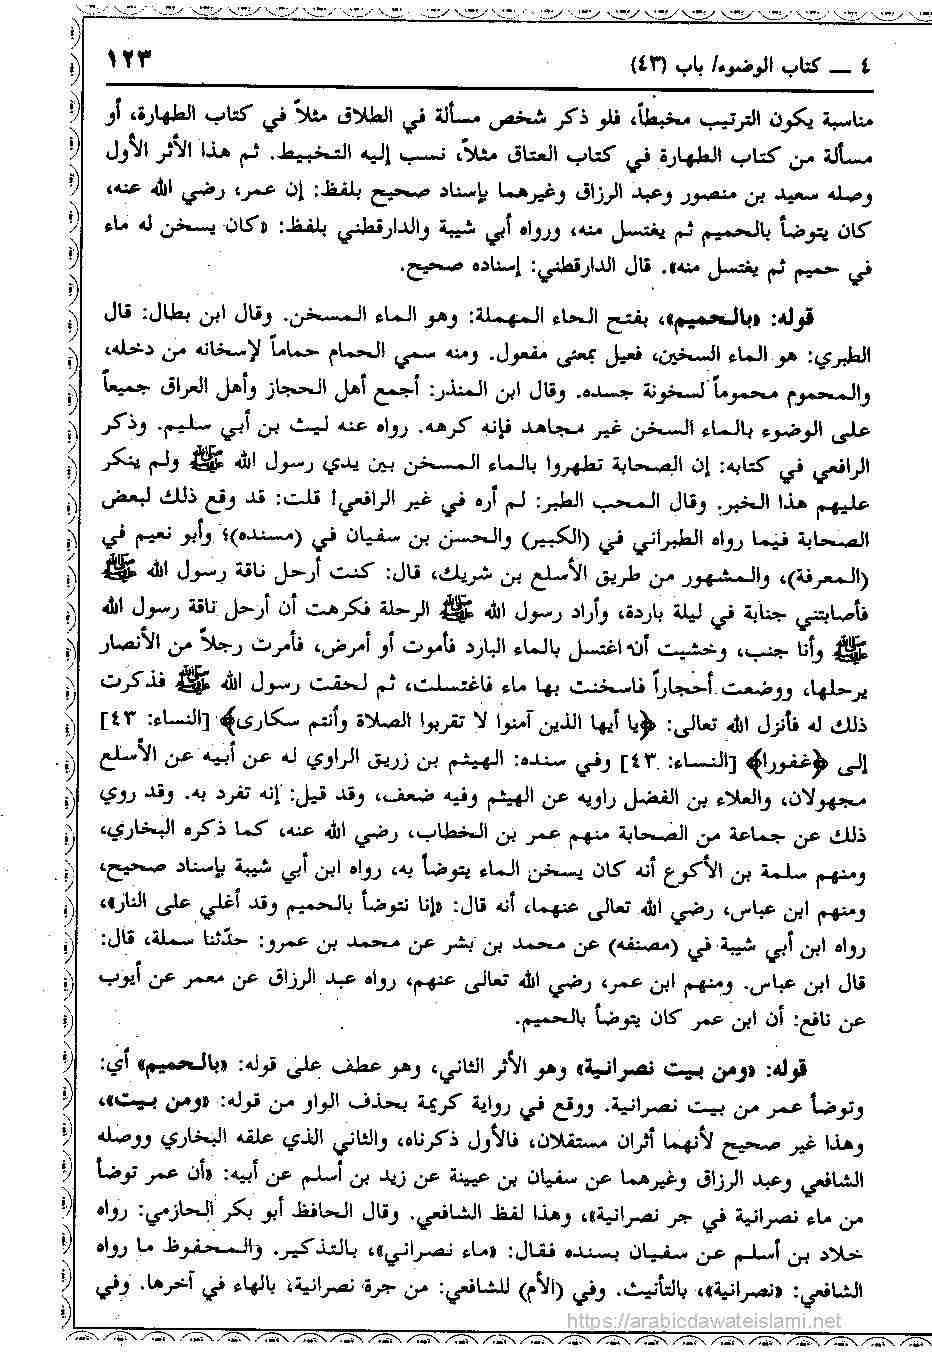 ٤ ــ كتاب الوضوء/ باب (٤٣)
١٢٣
مناسبة يكون الترتيب مخبطاً، فلو ذكر شخص مسألة في الطلاق مثلاً في كتاب الطهارة، أو
مسألة من كتاب الطهارة في كتاب العتاق مثلاً، نسب إليه التخبيط. ثم هذا الأثر الأول
وصله سعيد بن منصور وعبد الرزاق وغيرهما بإسناد صحيح بلفظ: إن عمر، رضي الله عنه،
كان يتوضأ بالحميم ثم يغتسل منه، ورواه أبي شيبة والدارقطني بلفظ: «كان يسخن له ماء
في حميم ثم يغتسل منه». قال الدارقطني: إسناده صحيح.
قوله: «بالحميم»، بفتح الحاء المهملة: وهو الماء المسخن. وقال ابن بطال: قال
الطبري: هو الماء السخين، فعيل بمعنى مفعول. ومنه سمي الحمام حماماً لإسخانه من دخله،
والمحموم محموماً لسخونة جسده. وقال ابن المنذر: أجمع أهل الحجاز وأهل العراق جميعاً
على الوضوء بالماء السخن غير مجاهد فإنه كرهه. رواه عنه ليث بن أبي سليم. وذكر
الرافعي في كتابه: إن الصحابة تطهروا بالماء المسخن بين يدي رسول الله ﷺ ولم ينكر
عليهم هذا الخبر. وقال المحب الطبر: لم أره في غير الرافعي! قلت: قد وقع ذلك لبعض
الصحابة فيما رواه الطبراني في (الكبير) والحسن بن سفيان في (مسنده)؟ وأبو نعيم في
(المعرفة)، والمشهور من طريق الأسلع بن شريك، قال: كنت أرحل ناقة رسول الله ﷺ
فأصابتني جنابة في ليلة باردة، وأراد رسول الله ﷺ الرحلة فكرهت أن أرحل ناقة رسول الله
ﷺ وأنا جنب، وخشيت أن اغتسل بالماء البارد فأموت أو أمرض، فأمرت رجلاً من الأنصار
يرحلها، ووضعت أحجاراً فاسخنت بها ماء فاغتسلت، ثم لحقت رسول الله ﷺ فذكرت
ذلك له فأنزل الله تعالى: ﴿يا أيها الذين آمنوا لا تقربوا الصلاة وأنتم سكارى﴾ [النساء: ٤٣]
إلى ﴿غفورا﴾ [النساء: ٤٣] وفي سنده: الهيثم بن زريق الراوي له عن أبيه عن الأسلع
مجهولان، والعلاء بن الفضل راويه عن الهيثم وفيه ضعف، وقد قيل: إنه تفرد به. وقد روي
ذلك عن جماعة من الصحابة منهم عمر بن الخطاب، رضي الله عنه، كما ذكره البخاري،
ومنهم سلمة بن الأكوع أنه كان يسخن الماء يتوضأ به، رواه ابن أبي شيبة بإسناد صحيح،
ومنهم ابن عباس، رضي الله تعالى عنهما، أنه قال: «إنا نتوضأ بالحميم وقد أغلي على النار»،
رواه ابن أبي شيبة في (مصنفه) عن محمد بن بشر عن محمد بن عمرو: حدّثنا سملة، قال:
قال ابن عباس. ومنهم ابن عمر، رضي الله تعالى عنهم، رواه عبد الرزاق عن معمر عن أيوب
عن نافع: أن ابن عمر كان يتوضأ بالحميم.
قوله: «ومن بيت نصرانية» وهو الأثر الثاني، وهو عطف على قوله: «بالحميم» أي:
وتوضأ عمر من بيت نصرانية. ووقع في رواية كريمة بحذف الواو من قوله: «ومن بيت»،
وهذا غير صحيح لأنهما أثران مستقلان، فالأول ذكرناه، والثاني الذي علقه البخاري ووصله
الشافعي وعبد الرزاق وغيرهما عن سفيان بن عيينة عن زيد بن أسلم عن أبيه: «أن عمر توضأ
من ماء نصرانية في جر نصرانية»، وهذا لفظ الشافعي. وقال الحافظ أبو بكر الحازمي: رواه
خلاد بن أسلم عن سفيان بسنده فقال: «ماء نصراني»، بالتذكير. والمحفوظ ما رواه
الشافعي: «نصرانية»، بالتأنيث. وفي (الأم) للشافعي: من جرة نصرانية، بالهاء في آخرها. وفي
https://arabicdawateislami.net